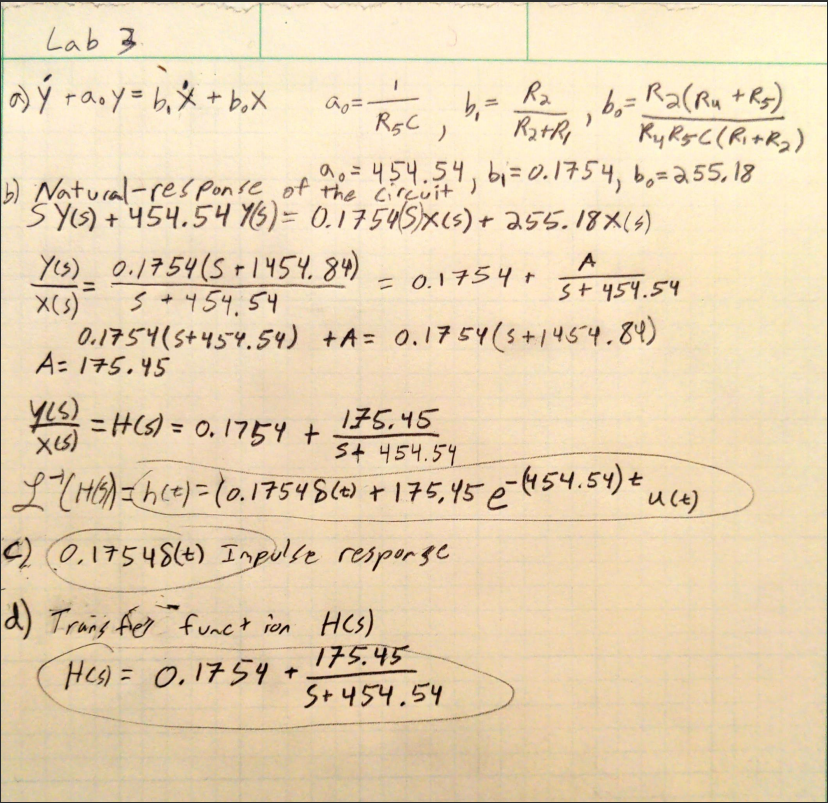 Lab 3
a) ẏ + a₀y = b₁ẋ + b₀x   a₀ = 1/(R₅C), b₁ = R₂/(R₂+R₁), b₀ = R₂(R₄+R₅)/(R₄R₅C(R₁+R₂))
a₀ = 454.54, b₁ = 0.1754, b₀ = 255.18
b) Natural-response of the circuit
SY(s) + 454.54 Y(s) = 0.1754(S)X(s) + 255.18X(s)
Y(s)/X(s) = 0.1754(s+1454.84)/(s+454.54) = 0.1754 + A/(s+454.54)
0.1754(s+454.54) + A = 0.1754(s+1454.84)
A = 175.45
Y(s)/X(s) = H(s) = 0.1754 + 175.45/(s+454.54)
ℒ⁻¹(H(s)) = h(t) = (0.1754δ(t) + 175.45 e^-(454.54)t u(t)
c) 0.1754δ(t) Impulse response
d) Transfer function H(s)
H(s) = 0.1754 + 175.45/(s+454.54)